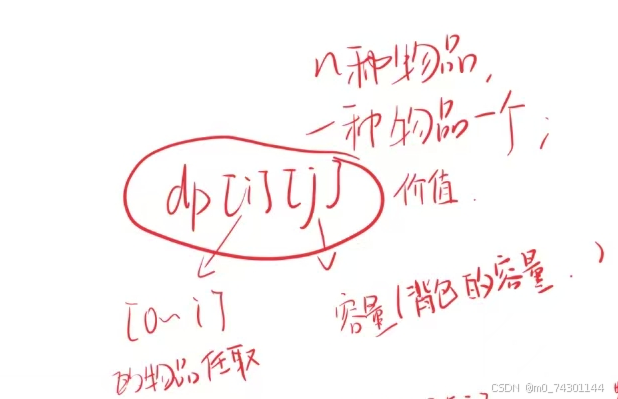 n种物品,
一种物品一个;
dp[i][j]
价值.
[0~i]
的物品任取
容量(背包的容量.)
CSDN @m0_74301144